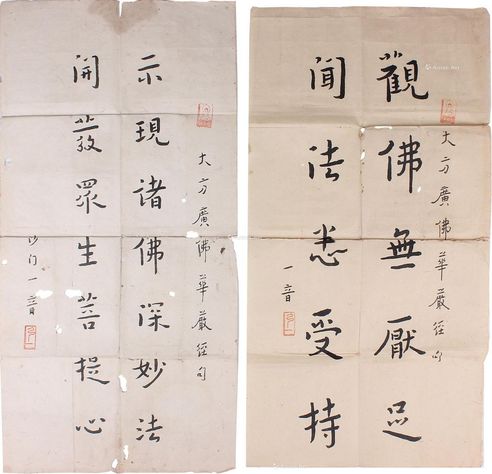 大方廣佛華嚴經句
觀佛無厭足
聞法悉受持
一音
大方廣佛華嚴經句
示現諸佛深妙法
開發眾生菩提心
沙門一音